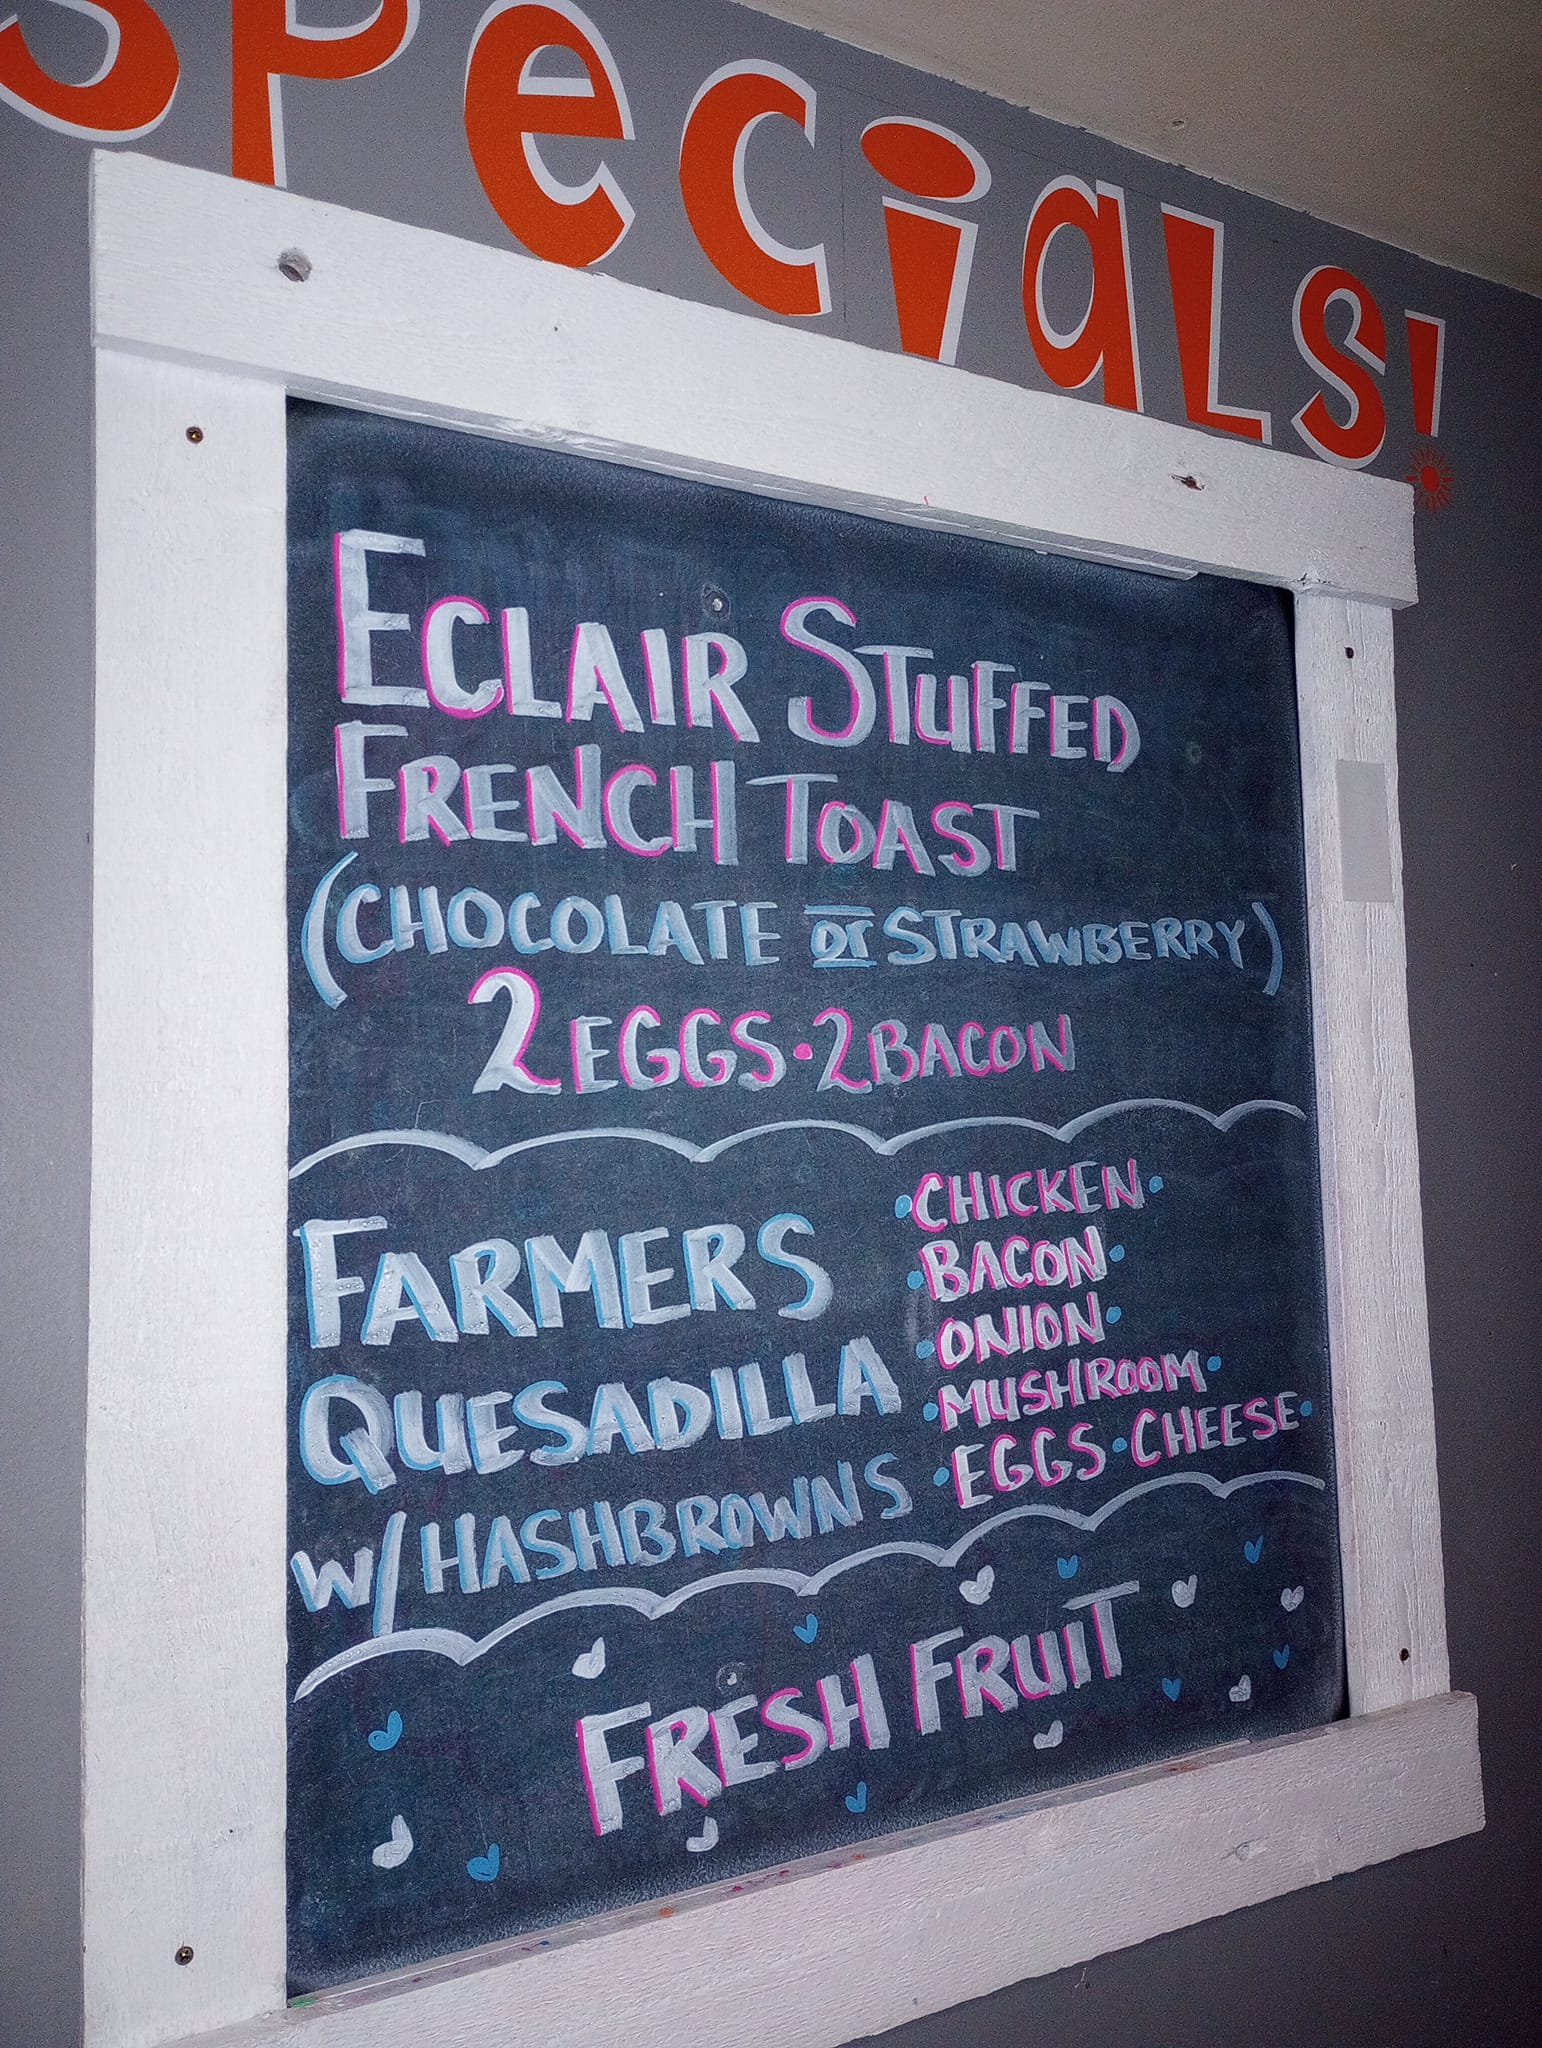 SPeciaLs!
ECLAIR STUFFED
FRENCH TOAST
(CHOCOLATE or STRAWBERRY)
2 EGGS • 2 BACON
FARMERS
QUESADILLA
W/ HASHBROWNS
• CHICKEN •
• BACON •
• ONION •
• MUSHROOM •
• EGGS • CHEESE •
FRESH FRUIT